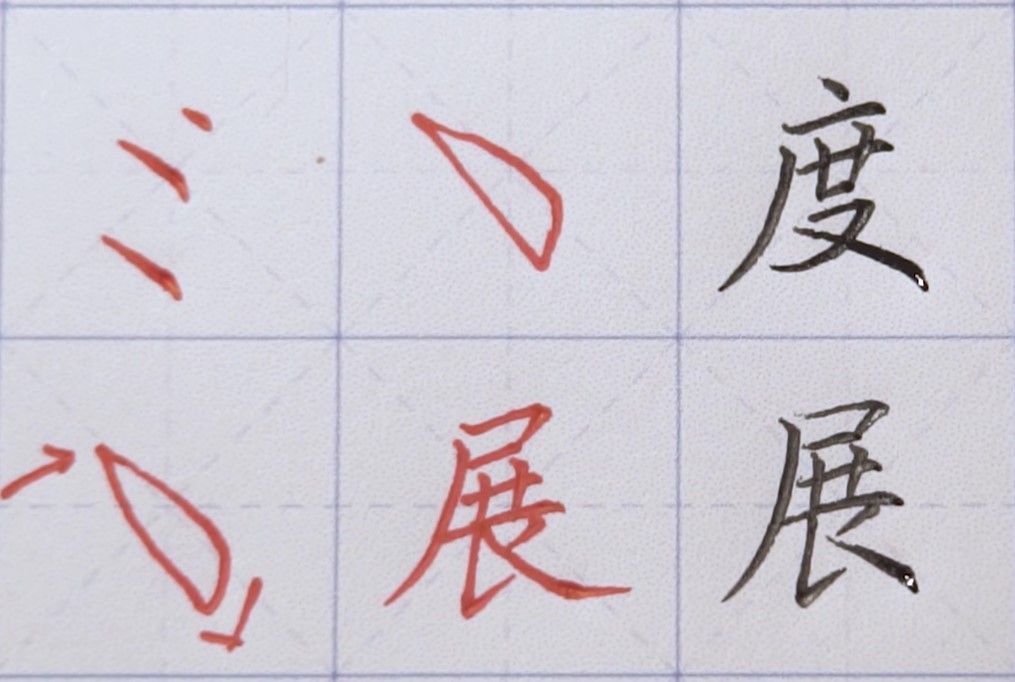 度
展 展